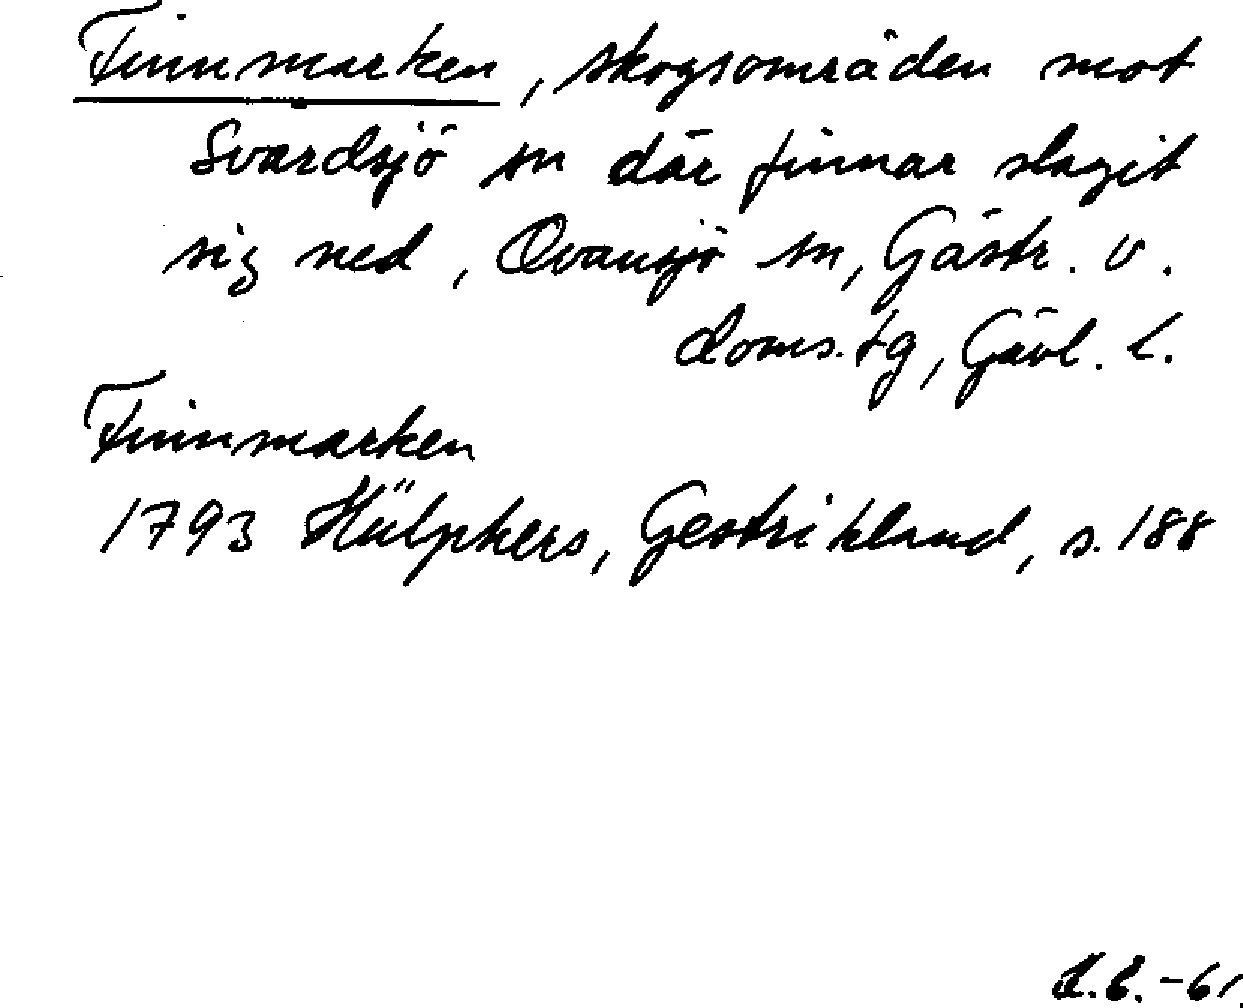 Finnmarken, skogsområden mot
Svärdsjö sn där finnar slagit
sig ned, Ovansjö sn, Gästr. v.
doms.tg, Gävl. l.
Finnmarken
1793 Hülphers, Gestrikland, s. 188